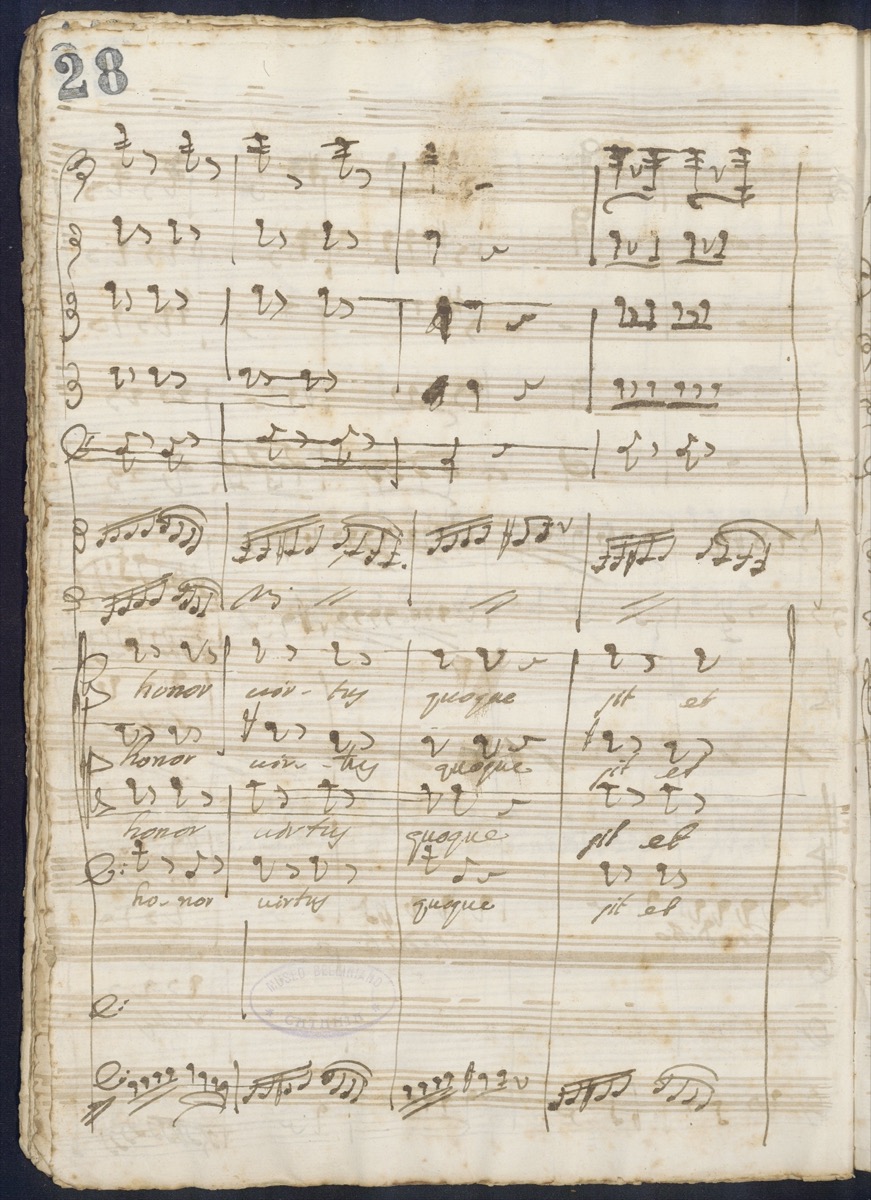 28
honor vir - tus quoque sit et
honor vir - tus quoque sit et
honor virtus quoque sit et
ho - nor virtus quoque sit et
MUSEO BELLINIANO
* CATANIA *